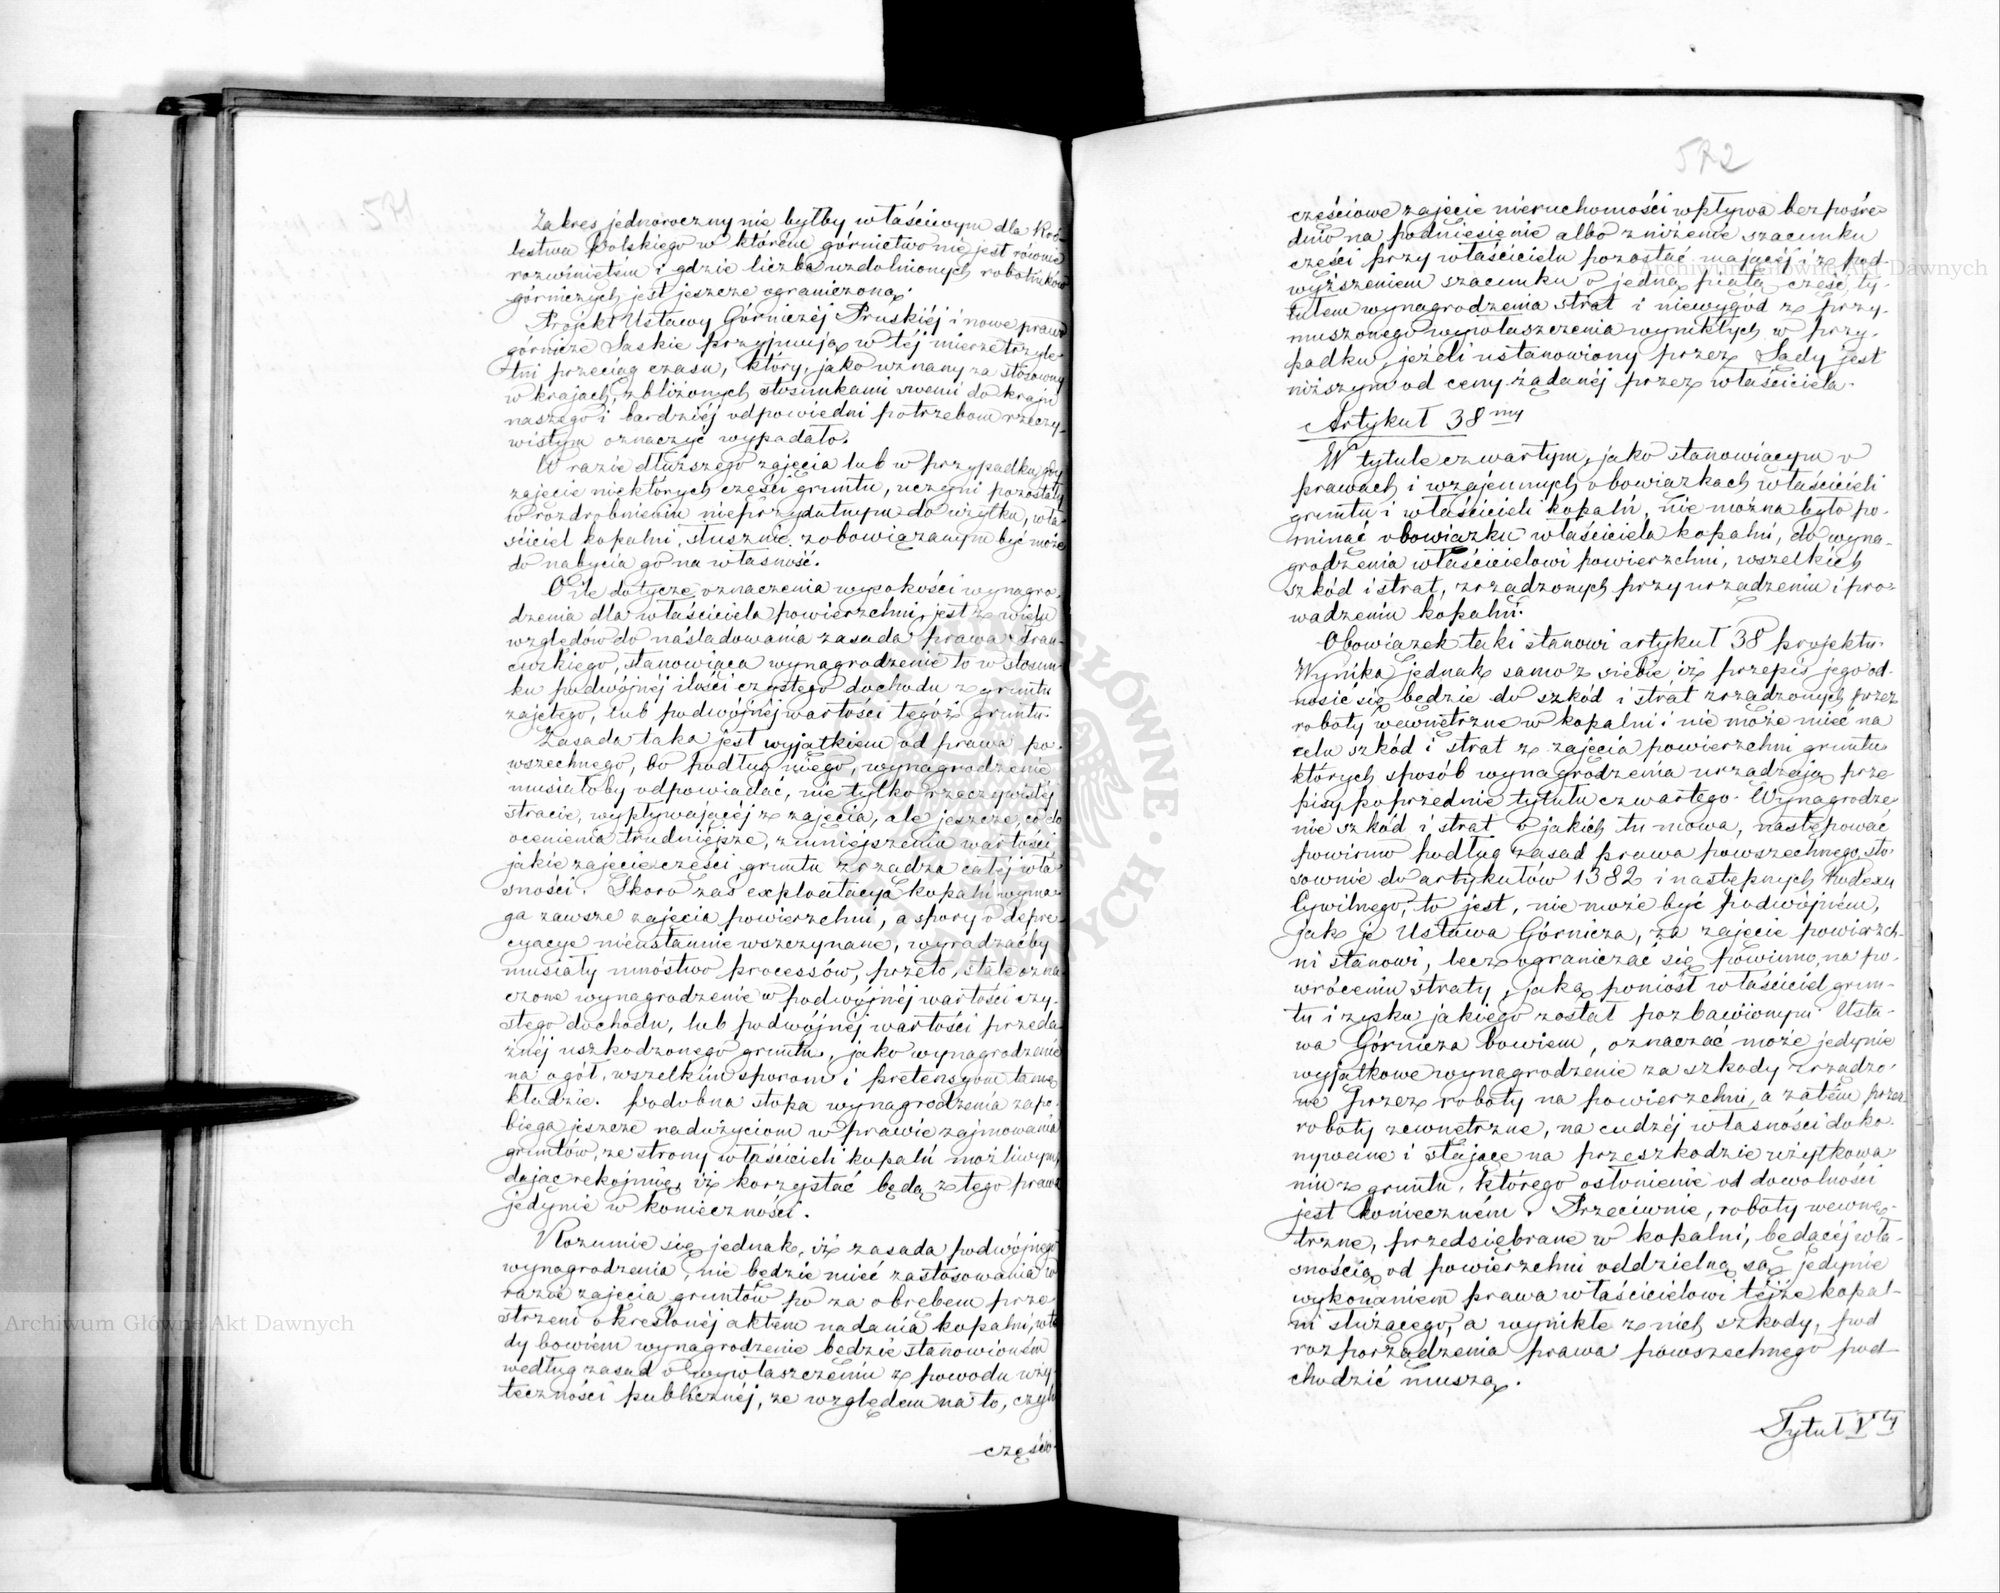 571
Zakres jednoroczny nie byłby właściwym dla Kró-
lestwa Polskiego w którém górnictwo nie jest równie
rozwiniętém i gdzie liczba uzdolnionych robotników
górniczych jest jeszcze ograniczoną.
Projekt Ustawy Górniczéj Pruskiéj i nowe prawo
górnicze Saskie przyjmują w téj mierze trzyle-
tni przeciąg czasu, który, jako uznany za stósowny
w krajach, zbliżonych stosunkami swemi do kraju
naszego i bardziéj odpowiedni potrzebom rzeczy-
wistym oznaczyć wypadało.
W razie dłuższego zajęcia lub w przypadku gdy
zajęcie niektórych części gruntu, uczyni pozostały
w rozdrobnieniu nieprzydatnym do użytku, wła-
ściciel kopalni, słusznie zobowiązanym być może
do nabycia go na własność.
O ile dotyczę oznaczenia wysokości wynagro-
dzenia dla właściciela powierzchni, jest z wielu
względów do naśladowania zasada prawa fran-
cuzkiego, stanowiąca wynagrodzenie to w stosun-
ku podwójnéj ilości czystego dochodu z gruntu
zajętego, lub podwójnéj wartości tegóż gruntu.
Zasada taka jest wyjątkiem od prawa po-
wszechnego, bo podług niego, wynagrodzenie
musiałoby odpowiadać, nie tylko rzeczywistéj
stracie, wypływającéj z zajęcia, ale jeszcze, co do
ocenienia trudniejsze, zmniejszeniu wartości
jakie zajęcie części gruntu zrządza całéj wła-
sności. Skoro zaś exploatacyja kopalni wyma-
ga zawsze zajęcia powierzchni, a spory o depre-
cyacye nieustannie wszczynane, wyradzaćby
musiały mnóstwo processów, przeto, stale ozna-
czone wynagrodzenie w podwójnéj wartości czy-
stego dochodu, lub podwójnéj wartości przeda-
żnéj uszkodzonego gruntu, jako wynagrodzenie
na ogół, wszelkim sporom i pretensyom tamę
kładzie. Podobna stopa wynagrodzenia zapo-
biega jeszcze nadużyciom w prawie zajmowania
gruntów, ze strony właścicieli kopalń możliwym,
dając rękojmię, iż korzystać będą z tego prawa
jedynie w konieczności.
Rozumie się jednak, iż zasada podwójnego
wynagrodzenia, nie będzie mieć zastosowania w
razie zajęcia gruntów po za obrębem prze-
strzeni określonéj aktem nadania kopalni, wte-
dy bowiem wynagrodzenie będzie stanowioném
według zasad o wywłaszczeniu z powodu uży-
teczności publicznéj, ze względem na to, czyli
częścio-
572
częściowe zajęcie nieruchomości wpływa bezpośre-
dnio na podniesienie albo zniżenie szacunku
części przy właścicielu pozostać mającéj i z pod-
wyższeniem szacunku o jedną piątą część, ty-
tułem wynagrodzenia strat i niewygód z przy-
muszonego wywłaszczenia wynikłych w przy-
padku, jeżeli ustanowiony przez Sądy jest
niższym od ceny żądanéj przez właściciela.
Artykuł 38my
W tytule czwartym, jako stanowiącym o
prawach i wzajemnych obowiązkach właścicieli
gruntu i właścicieli kopalń, nie można było po-
minąć obowiązku właściciela kopalni, do wyna-
grodzenia właścicielowi powierzchni, wszelkich
szkód i strat, zrządzonych przy urządzeniu i pro-
wadzeniu kopalni.
Obowiązek taki stanowi artykuł 38 projektu.
Wynika jednak samo z siebie iż przepis jego od-
nosić się będzie do szkód i strat zrządzonych przez
roboty wewnętrzne w kopalni i nie może mieć na
celu szkód i strat z zajęcia powierzchni gruntu
których sposób wynagrodzenia urządzają prze-
pisy poprzednie tytułu czwartego. Wynagrodze-
nie szkód i strat o jakich tu mowa, następować
powinno podług zasad prawa powszechnego, sto-
sownie do artykułów 1382 i następnych Kodexu
Cywilnego, to jest, nie może być podwójném,
jak je Ustawa Górnicza, za zajęcie powierzch-
ni stanowi, lecz ograniczać się powinno, na po-
wróceniu straty, jaką poniósł właściciel grun-
tu i zysku jakiego został pozbawionym. Usta-
wa Górnicza bowiem, oznaczać może jedynie
wyjątkowe wynagrodzenie za szkody zrządzo-
ne przez roboty na powierzchni, a zatém przez
roboty zewnętrzne, na cudzéj własności doko-
nywane i stające na przeszkodzie użytkowa-
niu z gruntu, którego osłonienie od dowolności
jest konieczném. Przeciwnie, roboty wewnę-
trzne, przedsiębrane w kopalni, będącéj wła-
snością od powierzchni oddzielną są jedynie
wykonaniem prawa właścicielowi téjże kopal-
ni służącego, a wynikłe z nich szkody, pod
rozporządzenia prawa powszechnego pod-
chodzić muszą.
Tytuł Vty
Archiwum Główne Akt Dawnych
Archiwum Główne Akt Dawnych